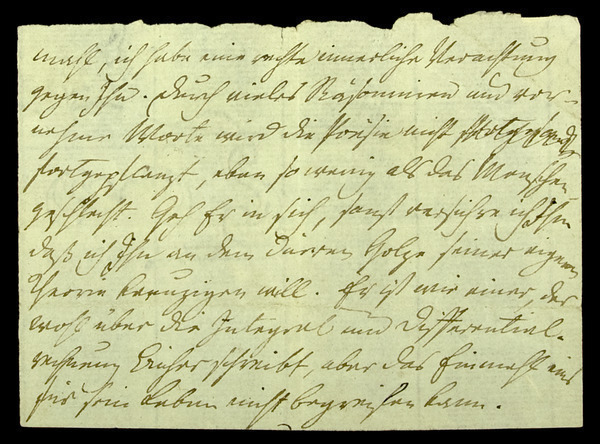 macht, ich habe eine rechte innerliche Verachtung
gegen Ihn. Durch vieles Räsonniren und vor-
nehme Worte wird die Poësie nicht
fortgepflanzt, eben so wenig als das Menschen
geschlecht. Geh Er in sich, sonst versichre ich Ihn
daß ich Ihn an dem dürren Holze seiner eignen
Herrn kreuzigen will. Er ist wie einer, der
wohl über die Integral und Differential-
rechnung Bücher schreibt, aber das Einmahl eins
für sein Leben nicht begreifen kann.